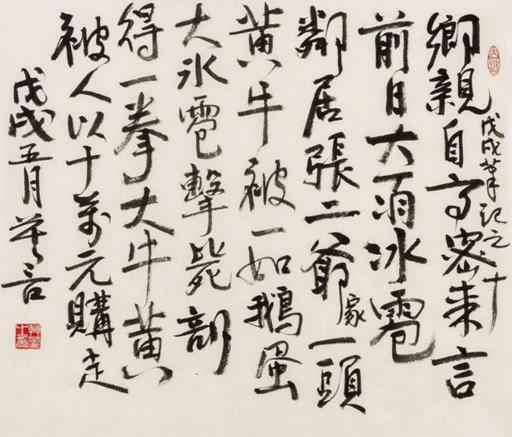 戊戌筆記之十
鄉親自高密来言
前日大雨冰雹
鄰居張二爺家一頭
黄牛被一如鵝蛋
大氷雹擊毙剖
得一拳大牛黄
被人以十萬元購走
戊戌五月莫言